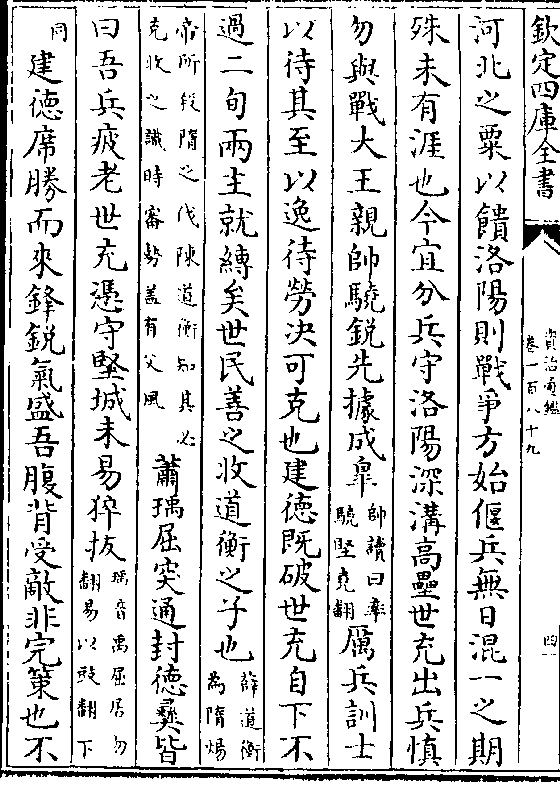 欽定四庫全書
資治通鑑
卷一百八十九
四
河北之粟以饋洛陽則戰爭方始偃兵無日混一之期
殊未有涯也今宜分兵守洛陽深溝高壘世充出兵慎
勿與戰大王親帥驍鋭先據成臯帥讀曰率驍堅堯翻厲兵訓士
以待其至以逸待勞決可克也建德既破世充自下不
過二旬兩主就縛矣世民善之收道衡之子也薛道衡為隋煬
帝所殺隋之伐陳道衡知其必克收之識時審勢盖有父風蕭瑀屈突通封德彞皆
曰吾兵疲老世充憑守堅城未易猝拔瑀音禹屈居勿翻易以豉翻下
同建德席勝而來鋒鋭氣盛吾腹背受敵非完策也不